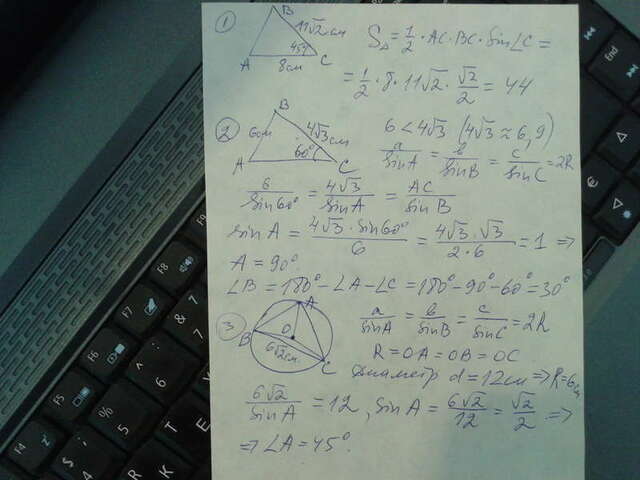 1 B 11√2 см 45° A 8см C S△ = 1/2 · AC · BC · sin∠C =
= 1/2 · 8 · 11√2 · √2/2 = 44
2 B 6см 4√3 см A 60° C 6 < 4√3 (4√3 ≈ 6,9)
a/sinA = b/sinB = c/sinC = 2R
6/sin60° = 4√3/sinA = AC/sinB
sinA = 4√3 · sin60°/6 = 4√3 · √3/2·6 = 1 ⇒
A = 90°
∠B = 180° - ∠A - ∠C = 180° - 90° - 60° = 30°
3 A B O 6√2см C a/sinA = b/sinB = c/sinC = 2R
R = OA = OB = OC
Диаметр d = 12см ⇒ R = 6см
6√2/sinA = 12, sinA = 6√2/12 = √2/2 ⇒
⇒ ∠A = 45°.
Home
End
F4
F5
F6
F7
F8
F9
%
5
6
7
&
8
R
T
€